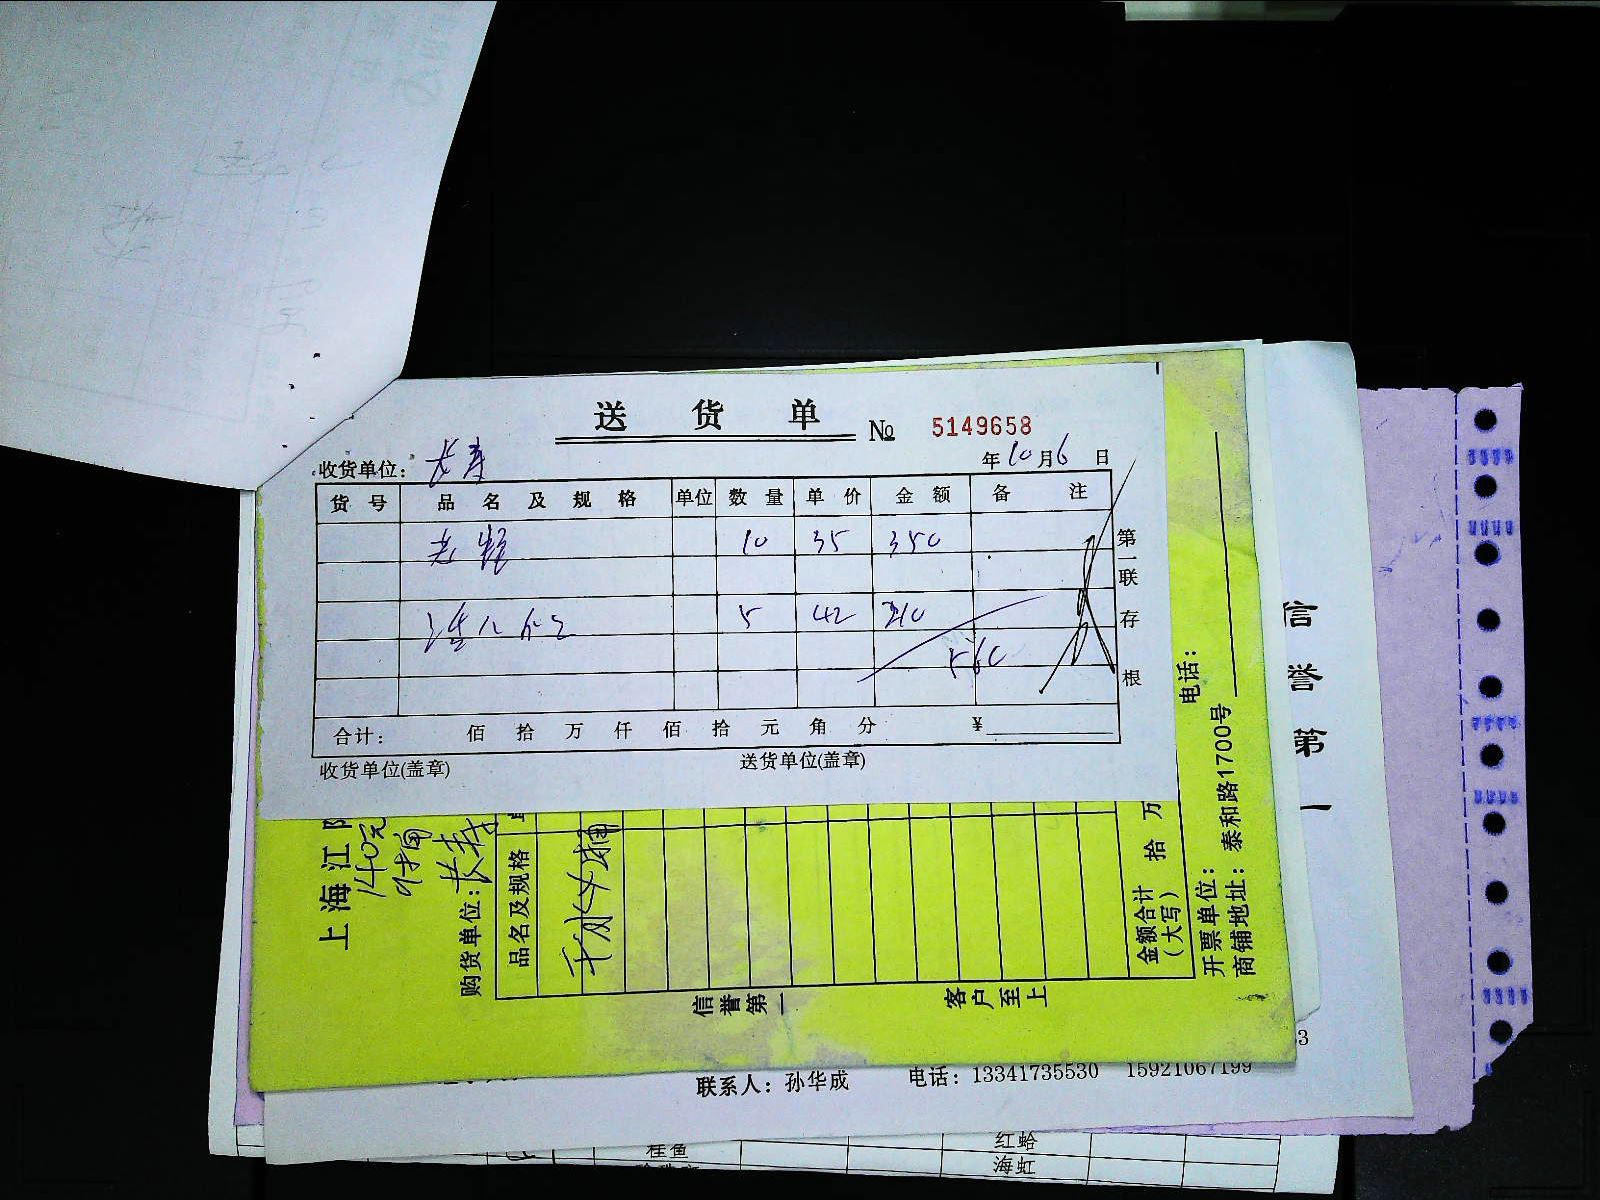 送货单 № 5149658
收货单位: 长寿 年10月6日
货号 品名及规格 单位 数量 单价 金额 备注
10 35 350
5 42 210
560
合计: 佰 拾 万 仟 佰 拾 元 角 分 ¥
收货单位(盖章) 送货单位(盖章)
第一联 存根
上海江阳
140元
9桶
购货单位: 长寿
品名及规格
金额合计(大写) 拾 万
开票单位:
商铺地址: 泰和路1700号
电话:
信誉第一 客户至上
信誉第一
联系人: 孙华成 电话: 13341735530 15921067199
桂鱼 红蛤
海虹